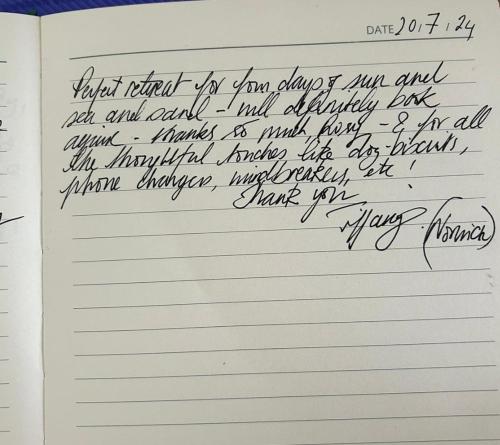 DATE 20.7.24
Perfect retreat for four days of sun and
sea and sand - will definitely book
again - thanks so much, Rosy - & for all
the thoughtful touches like dog-biscuits,
phone chargers, windbreakers, etc!
Thank you
Tiffany (Norwich)